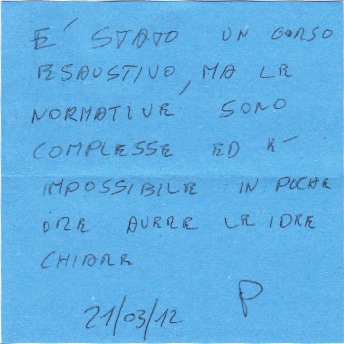 E' STATO UN CORSO
ESAUSTIVO, MA LE
NORMATIVE SONO
COMPLESSE ED E'
IMPOSSIBILE IN POCHE
ORE AVERE LE IDEE
CHIARE
21/03/12 P